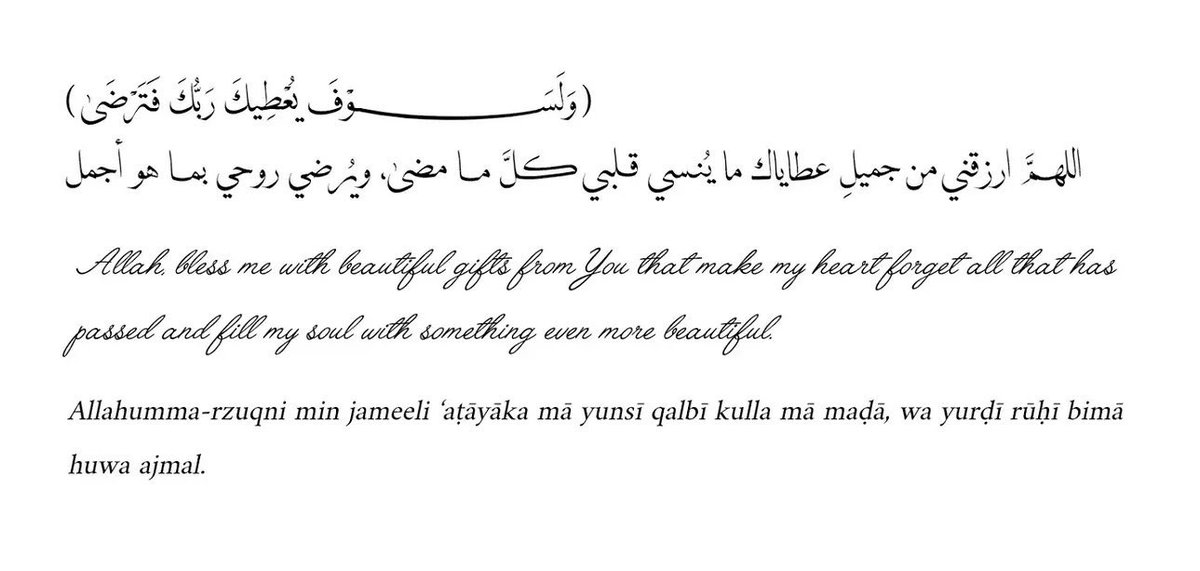 (وَلَسَوْفَ يُعْطِيكَ رَبُّكَ فَتَرْضَىٰ)
اللهمَّ ارزقني من جميلِ عطاياك ما يُنسي قلبي كلَّ ما مضىٰ، ويُرضي روحي بما هو أجمل
Allah, bless me with beautiful gifts from You that make my heart forget all that has
passed and fill my soul with something even more beautiful.
Allahumma-rzuqni min jameeli ‘aṭāyāka mā yunsī qalbī kulla mā maḍā, wa yurḍī rūḥī bimā
huwa ajmal.